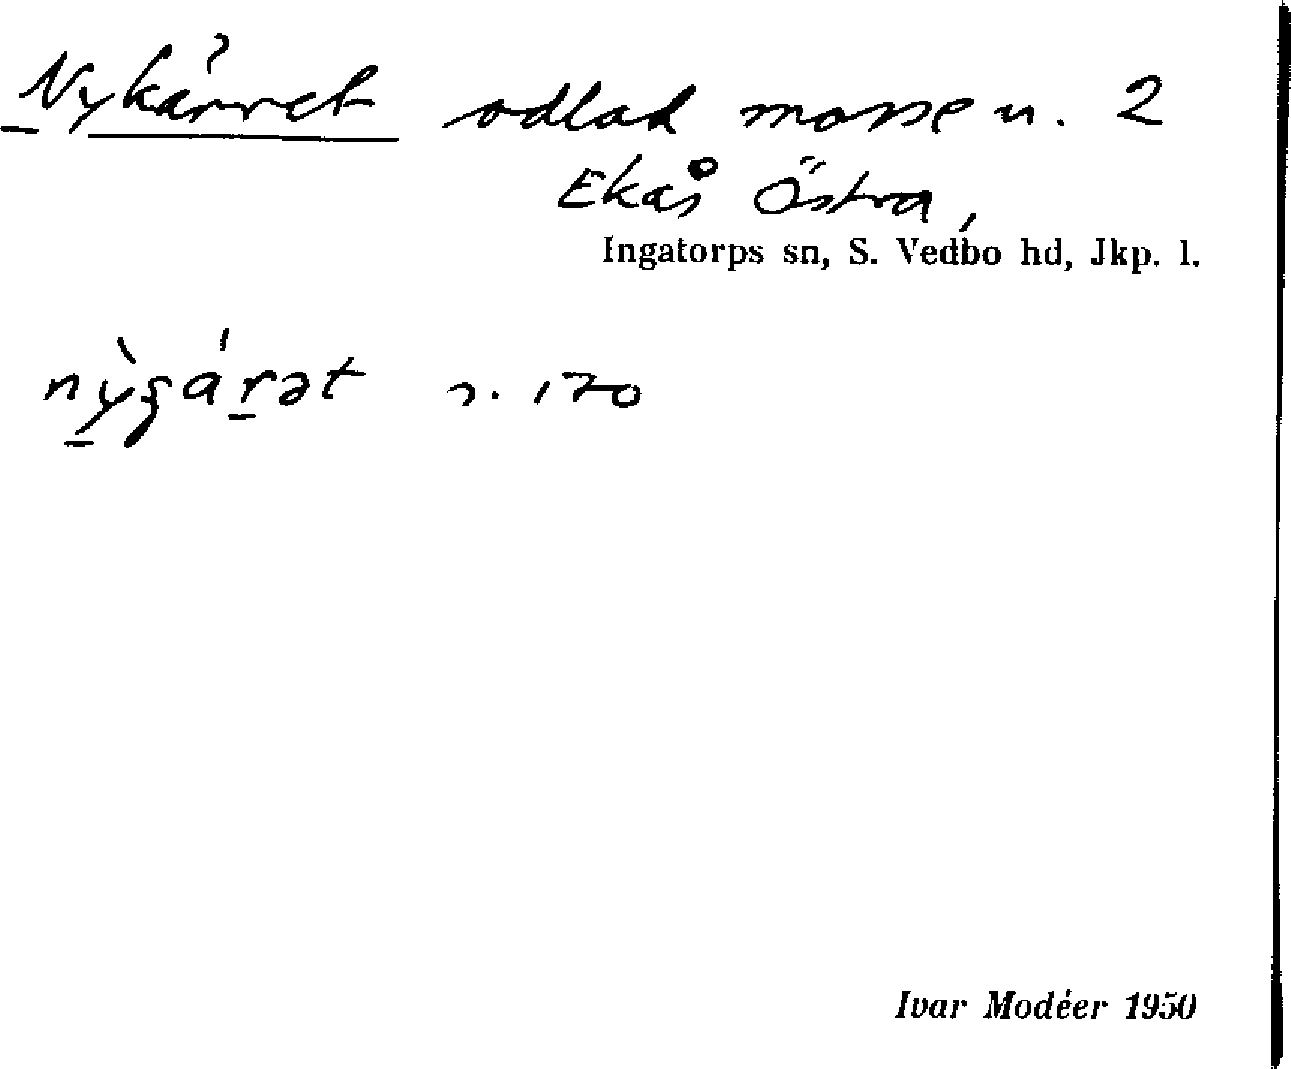 Nykärret odlad mosse u. 2
Ekås Östra,
Ingatorps sn, S. Vedbo hd, Jkp. l.
nỳɡárət s. 170
Ivar Modéer 1950